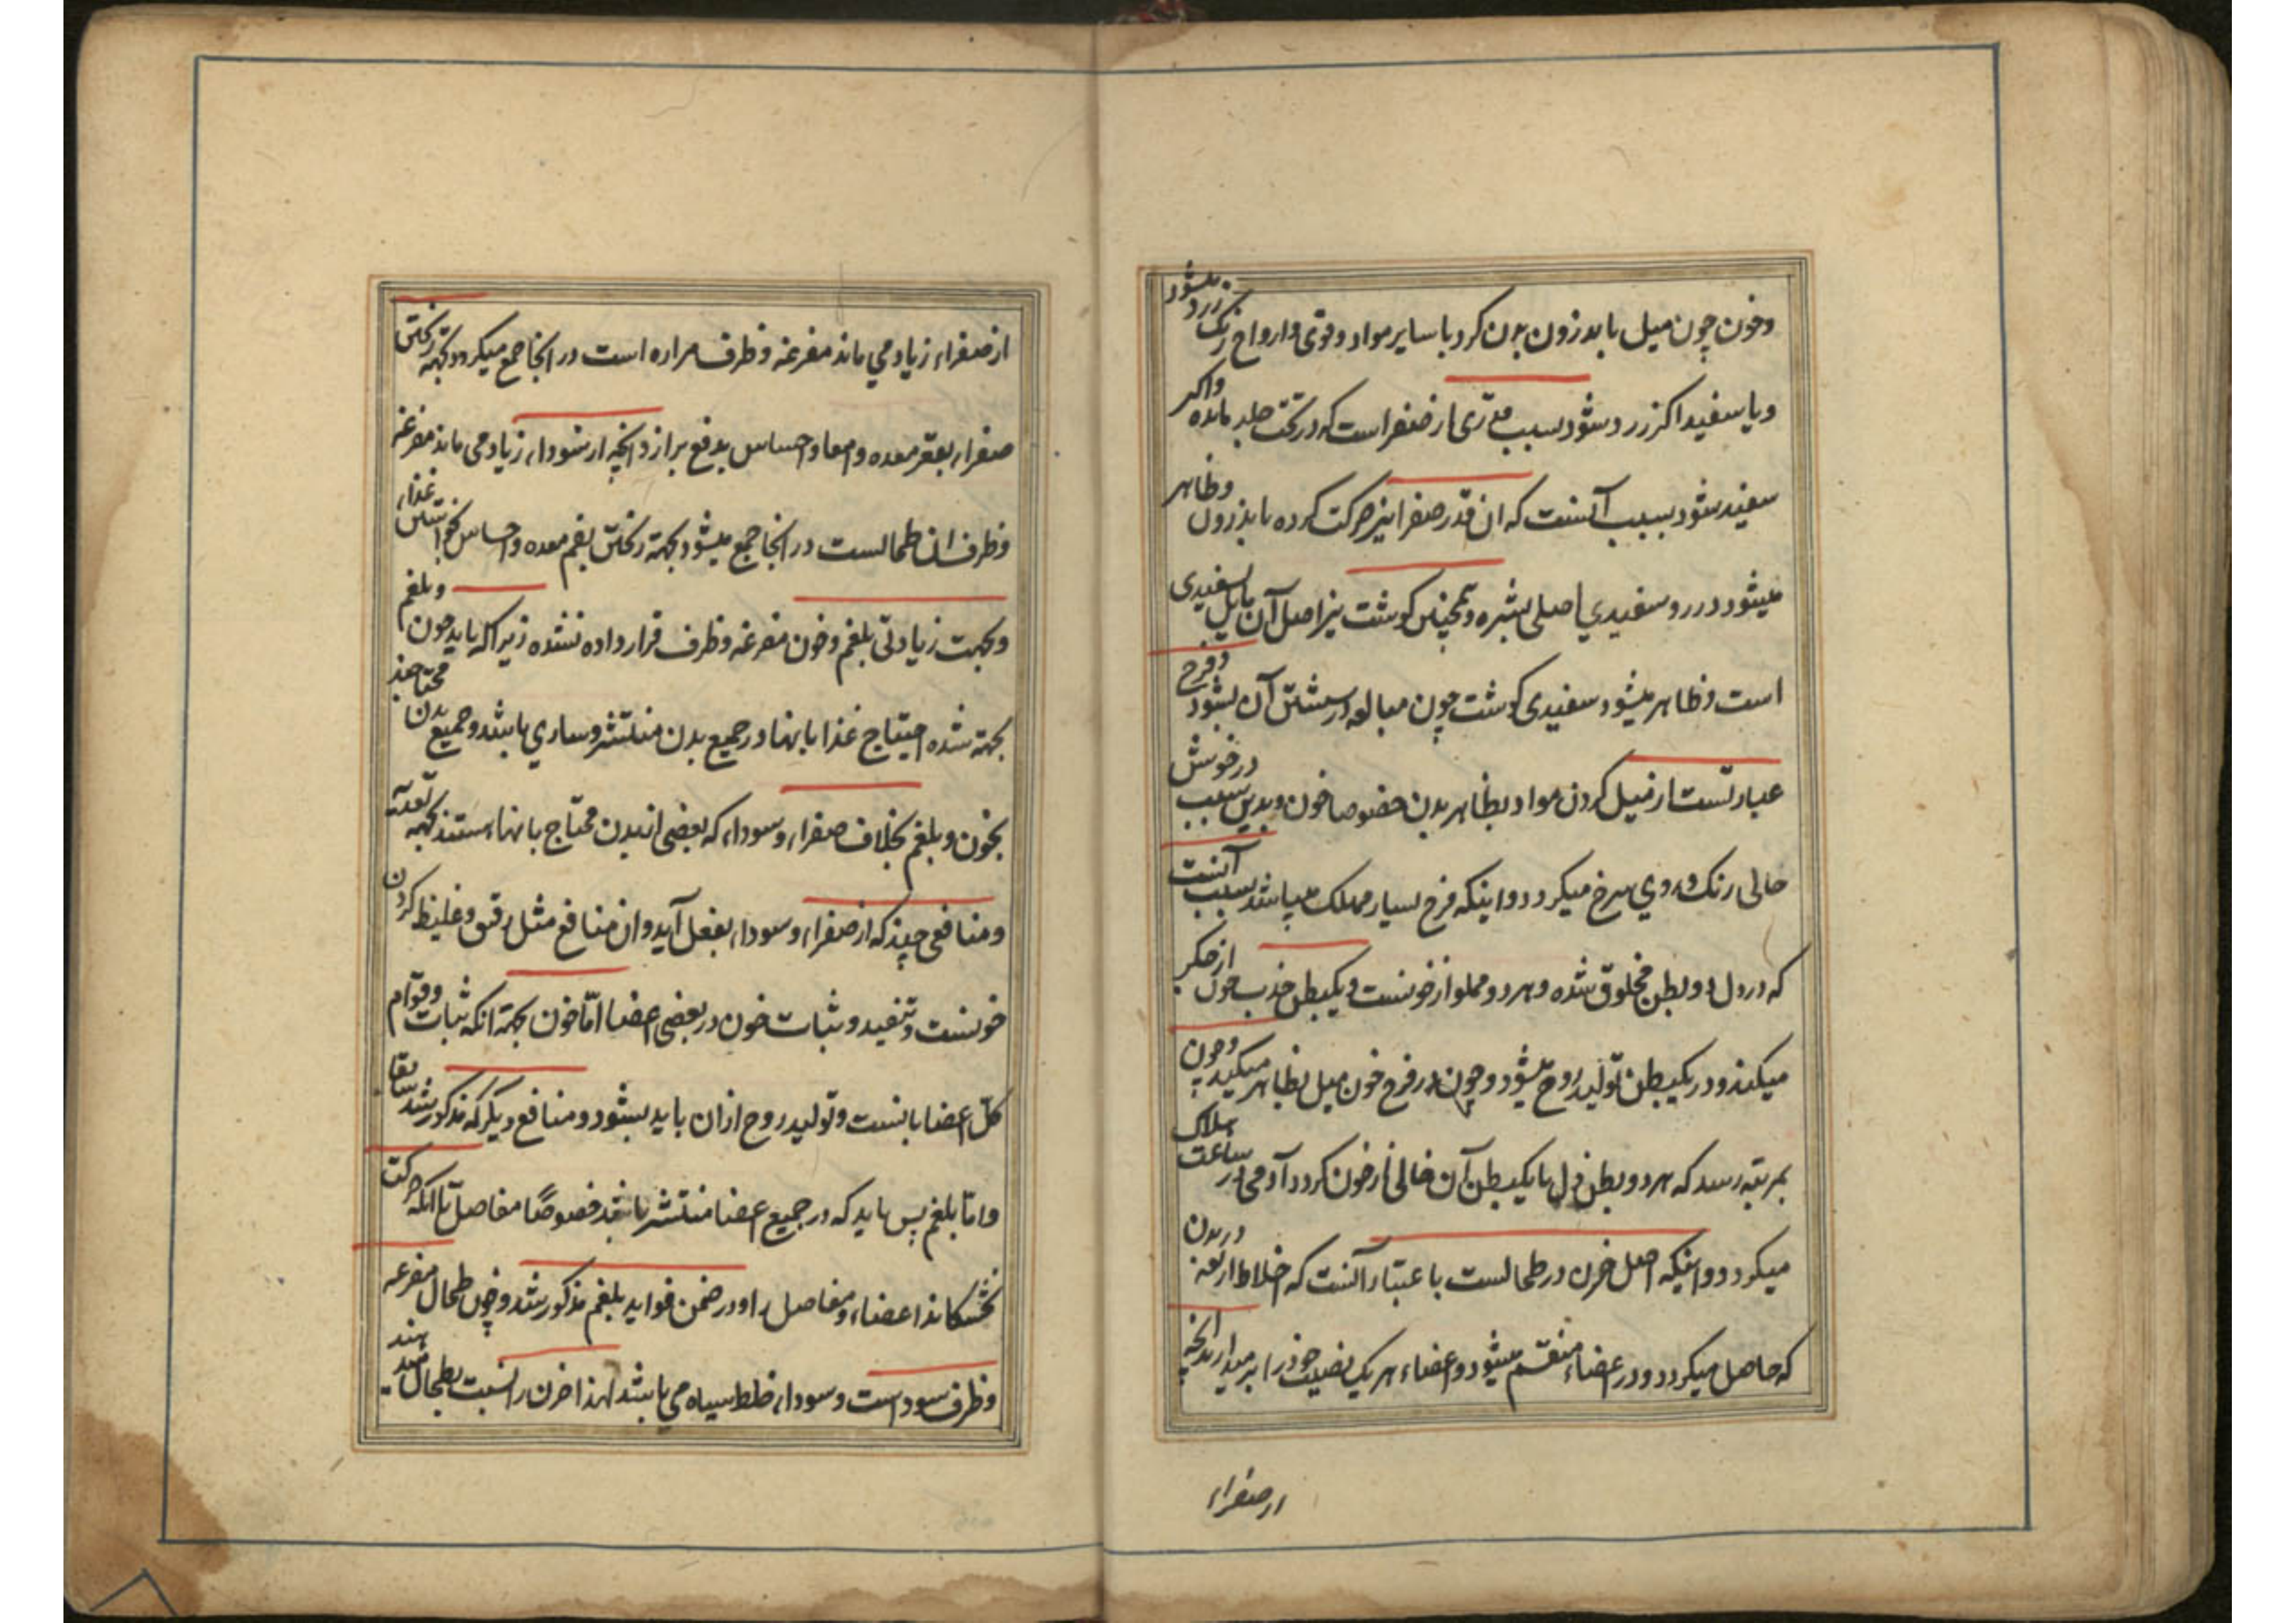 وخون چون میل باندرون بدن کرد با سایر مواد و قوی و ارواح رنک زرد میشود
ویا سفید اکر زرد شود بسبب قدری از صفراست که در تحت جلد مانده واکر
سفید شود بسبب آنست که ان قدر صفرا نیز حرکت کرده باندرون وظاهر
میشود در رو سفیدی اصلی بشره و همچنین کوشت نیز اصل آن مایل بسفیدی
است و ظاهر میشود سفیدی کوشت چون مبالغه در شستن آن بشود و فرح
عبارتست از میل کردن مواد بظاهر بدن خصوصا خون و بدین سبب در خوش
حالی رنک و روی سرخ میکردد و اینکه فرح بسیار مهلک میباشد بسبب آنست
که در دل دو بطن مخلوق شده و هر دو مملو از خونست و یکبطن جذب خون از جکر
میکند و در یکبطن تولید روح میشود و چون در فرح خون میل بظاهر میکند و چون
بمرتبه رسد که هر دو بطن دل یا یکبطن آن خالی از خون کردد آدمی در ساعت هلاک
میکردد و اینکه اصل حزن در طحالست باعتبار آنست که اخلاط اربعه در بدن
که حاصل میکردد و در اعضاء منقسم میشود و اعضاء هر یک نصیب خود را بر میدارند انچه
از صفراء
از صفراء زیاد می ماند مفرغه و ظرف مراره است در انجا جمع میکردد بجهته ریختن
صفراء بقعر معده و امعا و احساس بدفع براز و انچه از سوداء زیاد می ماند مفرغه
و ظرف ان طحالست در انجا جمع میشود بجهته ریختن بفم معده و احساس بخواستن غذاء
و بجهت زیادتی بلغم و خون مفرغه و ظرف قرار داده نشده زیرا که باید خون و بلغم
بجهته شده احتیاج غذا بانها در جمیع بدن منتشر و ساری باشد و جمیع بدن محتاجند
بخون و بلغم بخلاف صفراء و سوداء که بعضی از بدن محتاج بانها هستند بجهه تغذیه
و منافعی چند که از صفراء و سوداء بفعل آید و ان منافع مثل رقیق و غلیظ کردن
خونست و تنفید و ثبات خون در بعضی اعضا امّا خون بجهته انکه ثبات و قوام
کل اعضا بانست و تولید روح از ان باید بشود و منافع دیکر که مذکور شد سابقا
و امّا بلغم پس باید که در جمیع اعضا منتشر باشد خصوصًا مفاصل تا انکه حرکت
نخشکاند اعضاء و مفاصل را و در ضمن فواید بلغم مذکور شد و چون طحال مفرغه
و ظرف سوداست و سوداء خلط سیاه می باشد لهذا حزن را نسبت بطحال میدهند